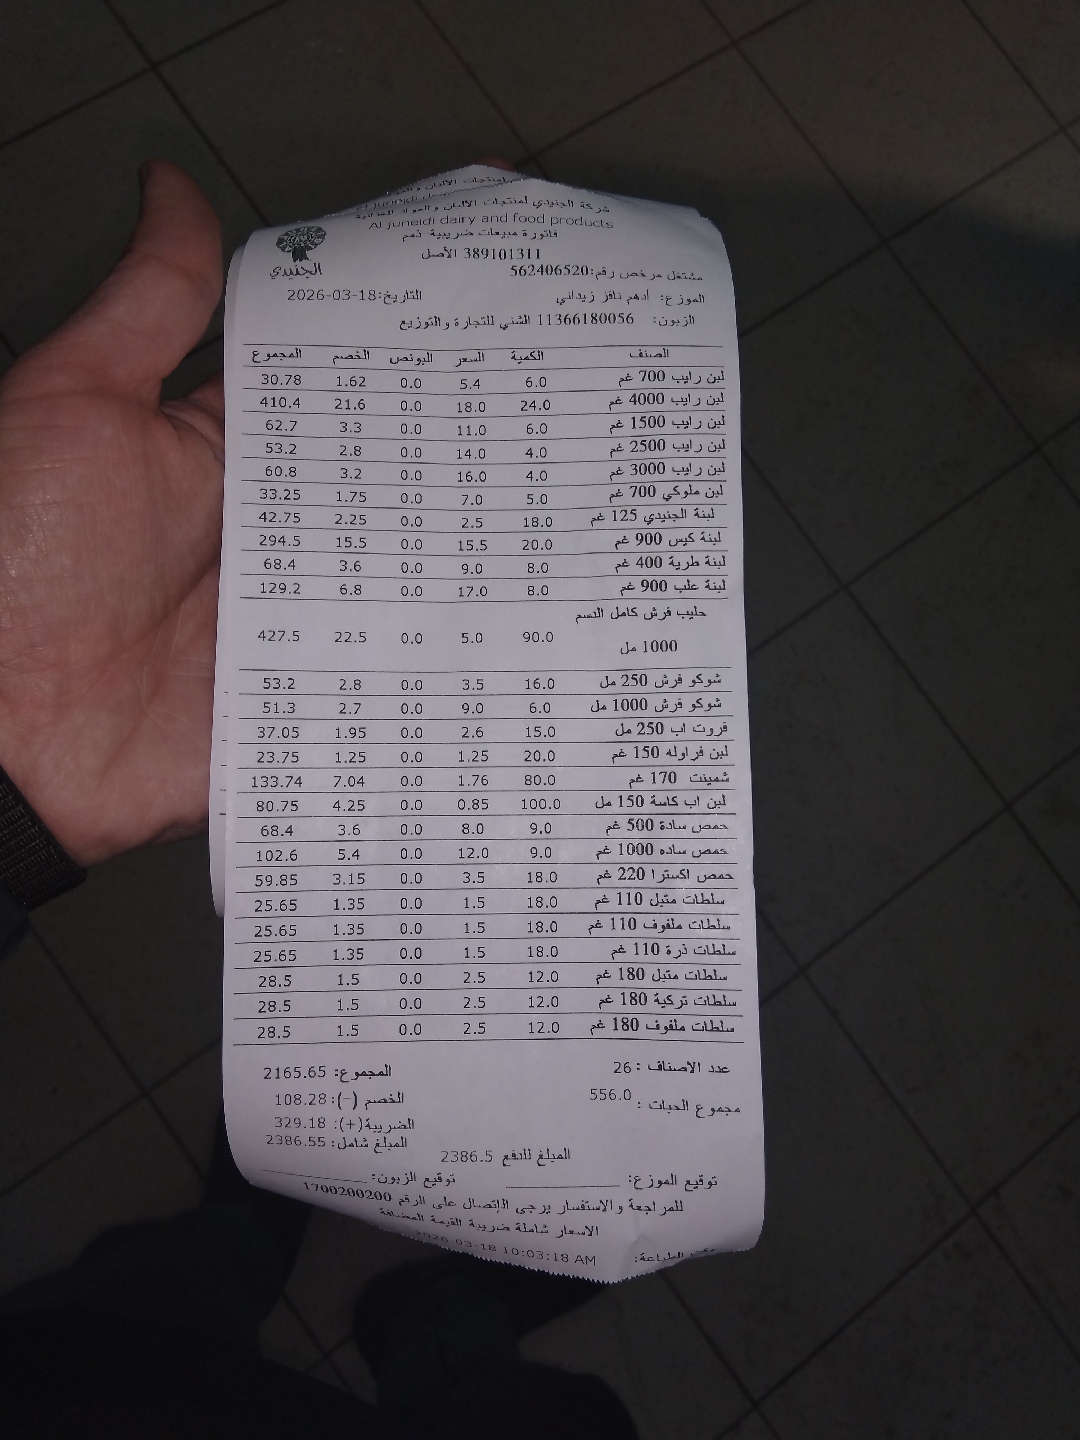 لمنتجات الالبان و
Al Juneidi
شركة الجنيدي لمنتجات الالبان والمواد الغذائية
Al Juneidi dairy and food products
فاتورة مبيعات ضريبية ذمم
389101311 الأصل
الجنيدي
مشتغل مرخص رقم:562406520
الموزع: أدهم نافز زيداني التاريخ:2026-03-18
الزبون: 11366180056 الشني للتجارة والتوزيع
الصنف الكمية السعر البونص الخصم المجموع
لبن رايب 700 غم 6.0 5.4 0.0 1.62 30.78
لبن رايب 4000 غم 24.0 18.0 0.0 21.6 410.4
لبن رايب 1500 غم 6.0 11.0 0.0 3.3 62.7
لبن رايب 2500 غم 4.0 14.0 0.0 2.8 53.2
لبن رايب 3000 غم 4.0 16.0 0.0 3.2 60.8
لبن ملوكي 700 غم 5.0 7.0 0.0 1.75 33.25
لبنة الجنيدي 125 غم 18.0 2.5 0.0 2.25 42.75
لبنة كيس 900 غم 20.0 15.5 0.0 15.5 294.5
لبنة طرية 400 غم 8.0 9.0 0.0 3.6 68.4
لبنة علب 900 غم 8.0 17.0 0.0 6.8 129.2
حليب فرش كامل الدسم
1000 مل 90.0 5.0 0.0 22.5 427.5
شوكو فرش 250 مل 16.0 3.5 0.0 2.8 53.2
شوكو فرش 1000 مل 6.0 9.0 0.0 2.7 51.3
فروت اب 250 مل 15.0 2.6 0.0 1.95 37.05
لبن فراوله 150 غم 20.0 1.25 0.0 1.25 23.75
شمينت 170 غم 80.0 1.76 0.0 7.04 133.74
لبن اب كاسة 150 مل 100.0 0.85 0.0 4.25 80.75
حمص سادة 500 غم 9.0 8.0 0.0 3.6 68.4
حمص ساده 1000 غم 9.0 12.0 0.0 5.4 102.6
حمص اكسترا 220 غم 18.0 3.5 0.0 3.15 59.85
سلطات متبل 110 غم 18.0 1.5 0.0 1.35 25.65
سلطات ملفوف 110 غم 18.0 1.5 0.0 1.35 25.65
سلطات ذرة 110 غم 18.0 1.5 0.0 1.35 25.65
سلطات متبل 180 غم 12.0 2.5 0.0 1.5 28.5
سلطات تركية 180 غم 12.0 2.5 0.0 1.5 28.5
سلطات ملفوف 180 غم 12.0 2.5 0.0 1.5 28.5
عدد الاصناف : 26 المجموع: 2165.65
مجموع الحبات : 556.0 الخصم (-): 108.28
الضريبة(+): 329.18
المبلغ شامل: 2386.55
المبلغ للدفع 2386.5
توقيع الموزع: توقيع الزبون:
للمراجعة والاستفسار يرجى الإتصال على الرقم 1700200200
الاسعار شاملة ضريبة القيمة المضافة
الطباعة: 2026-03-18 10:03:18 AM